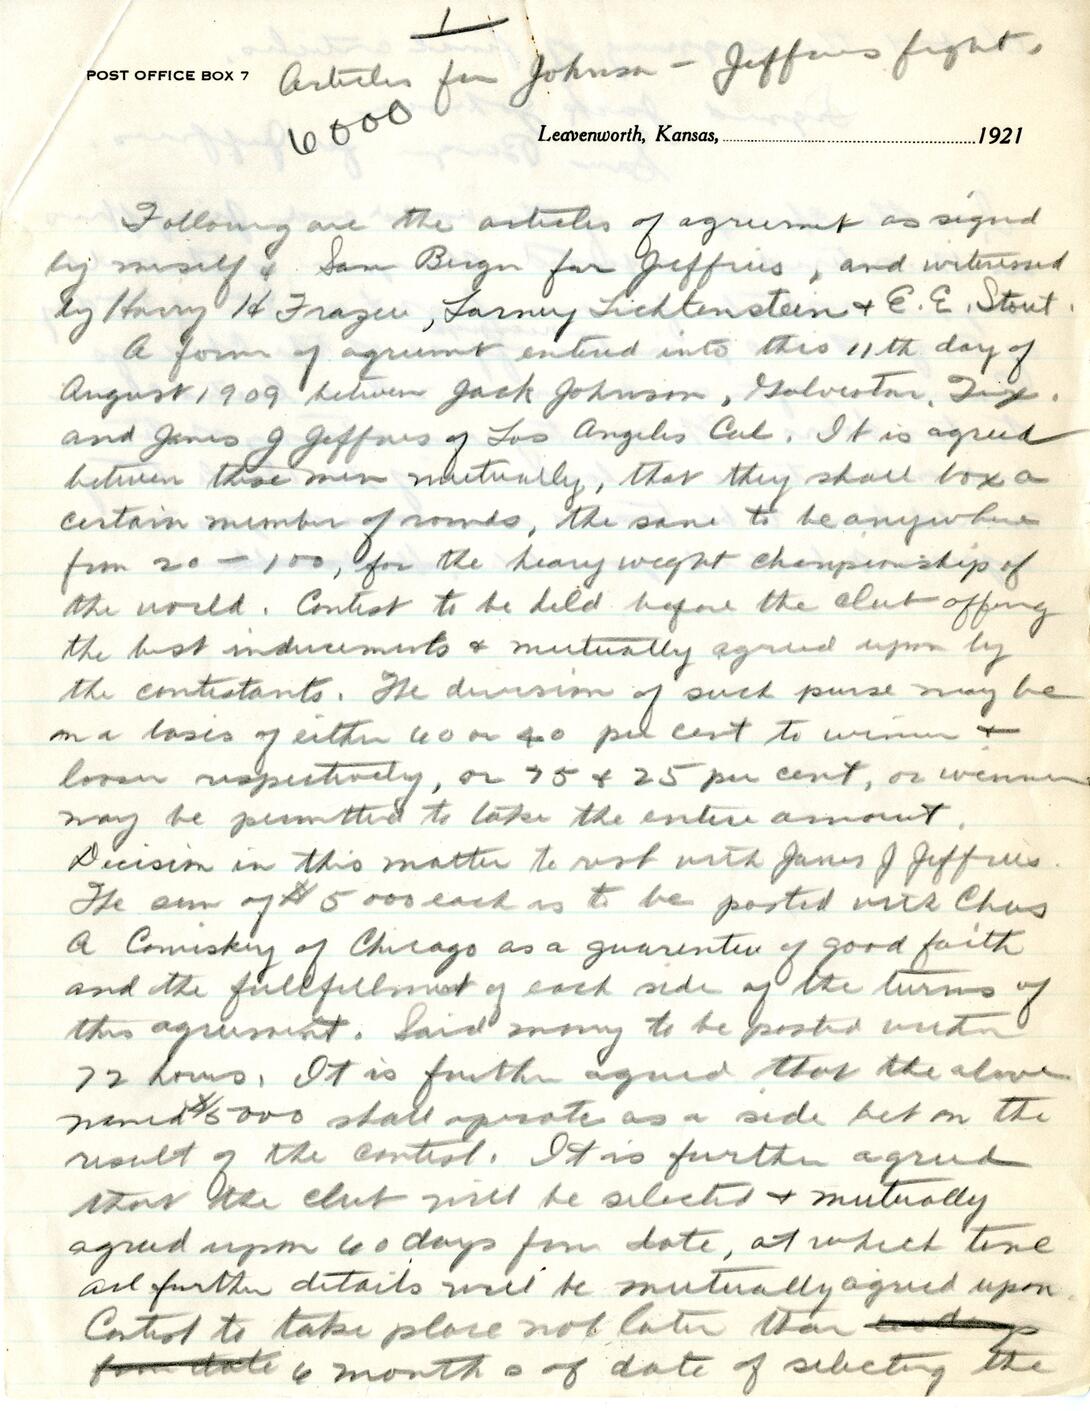 1
POST OFFICE BOX 7
Articles for Johnson - Jeffries fight.
6000
Leavenworth, Kansas, 1921
Following are the articles of agreemt as signed
by miself & Sam Berger for Jeffries, and witnessed
by Harry H Frazee, Larney Lichtenstein & E. E. Stout.
A form of agreemt entered into this 11th day of
August 1909 between Jack Johnson, Galveston, Tex.
and James J Jeffries of Los Angeles Cal. It is agreed
between these men mutually, that they shall box a
certain number of rounds, the same to be anywhere
from 20 - 100, for the heavy weght championship of
the world. Contest to be held before the club offering
the best inducements & mutually agreed upon by
the contestants. The division of such purse may be
on a basis of either 60 or 40 per cent to winner &
looser respectively, or 75 & 25 per cent, or winner
may be permitted to take the entire amount.
Decision in this matter to rest with James J Jeffries.
The sum of $5000 each is to be posted with Chas
A Comiskey of Chicago as a guarentee of good faith
and the fullfillment of each side of the turms of
this agreement. Said money to be posted within
72 hours. It is further agreed that the above
named $5000 shall operate as a side bet on the
result of the contest. It is further agreed
that the club will be selected & mutually
agreed upon 60 days from date, at which time
all further details will be mutually agreed upon.
Contest to take place not later than
from date 6 months of date of selecting the